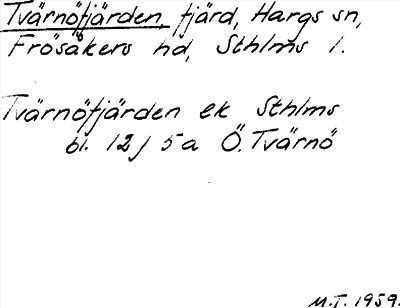 Tvärnöfjärden, fjärd, Hargs sn,
Frösåkers hd, Sthlms l.
Tvärnöfjärden ek Sthlms
bl. 12 J 5 a Ö. Tvärnö
M.T. 1959.